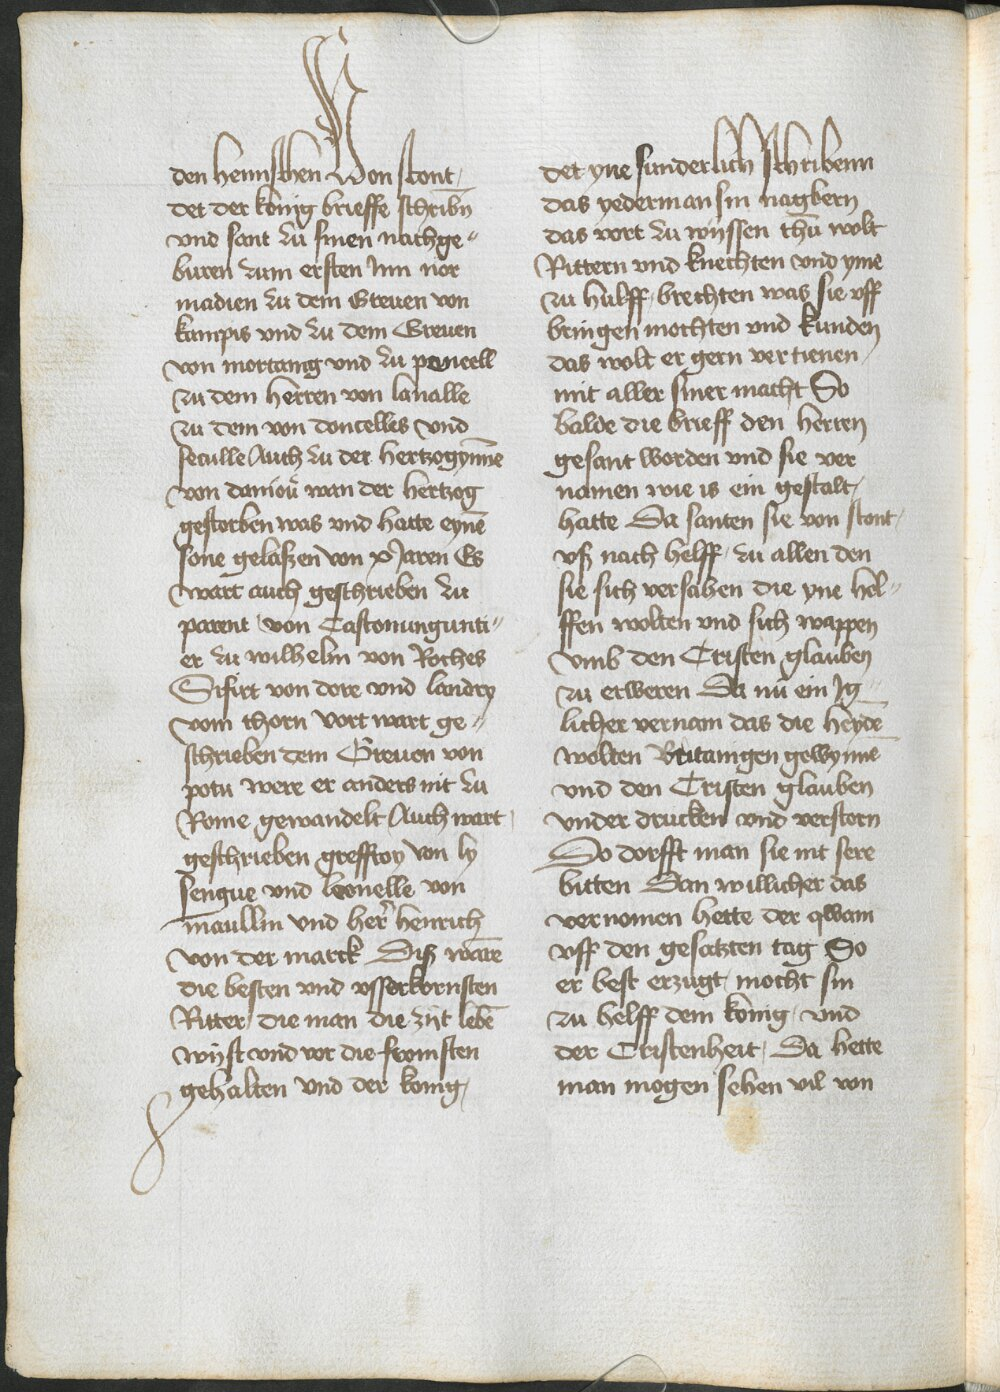 den hennschen Von stont
det der konig brieffe schribn̄
vnd sant zu sinen nachge"
buren zum ersten Inn nor
madien zu dem Greuen von
kampis vnd zu dem Greuen
von mortang vnd zu poncell
zu dem herren von lanalle
zu dem von doncelles vnd
seculle Auch zu der hertzogynne
von daniou wan der hertzog
gestorben was vnd hatte eynē
sone gelaßen von x Jaren Es
wart auch geschrieben zu
parent von Castonungunti"
er zu wilhelm von Roches
Sifirt von dore vnd landry
vom thorn Vort wart ge"
schrieben dem Greuen von
potu were er anders nit zu
Rome gewandelt Auch wart
geschrieben greffroy von ly
sengue vnd leonelle von
maullin vnd her henrich
von der marck Diß warē
die besten vnd vsserkornsten
Ritter die man die zijt lebē
wyst vnd vor die fromsten
gehalten vnd der konig
det yne sunderlich schribenn
das yederman sin nagbern
das vort zu wyssen thū wolt
Rittern vnd knechten vnd yme
zu hulff brechten was sie vff
bringen mochten vnd kunden
das wolt er gern vertienen
mit aller siner macht So
balde die brieff den herren
gesant worden vnd sie ver
namen wie is ein gestalt
hatte Da santen sie von stont
vß nach helff zu allen den
sie sich versahen die yne hel"
ffen wolten vnd sich wappen
vmb den Cristen glauben
zu erweren Da nū ein Ig"
licher vernam das die heydē
wolten Britanigen gewynnē
vnd den Cristen glauben
vnder drucken vnd verstorn
So dorfft man sie nit sere
bitten Dan willicher das
vernomen hette der qwam
vff den gesatzten tag So
er best erzugt mocht sin
zu helff dem konig vnd
der Cristenheit Da hette
man mogen sehen vil von